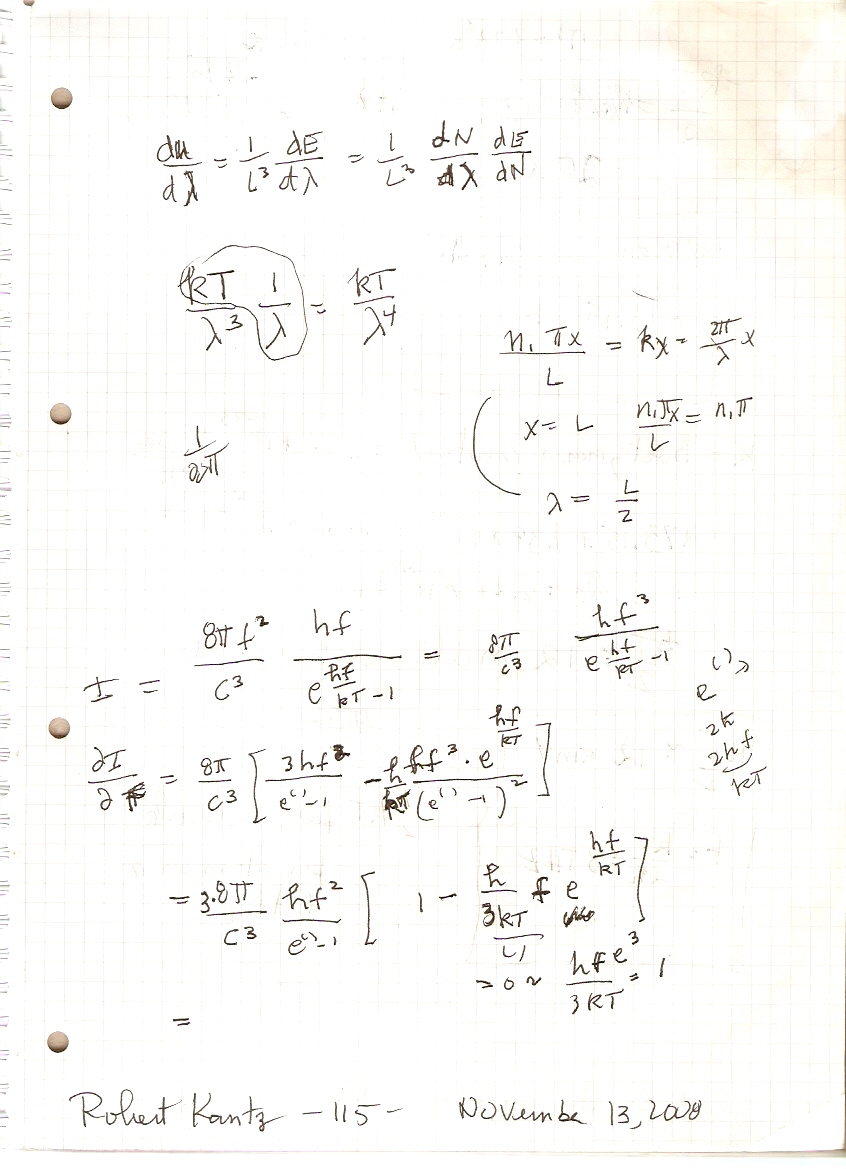 du/dλ = 1/L³ dE/dλ = 1/L³ dN/dλ dE/dN
kT/λ³ 1/λ = kT/λ⁴
n₁πx/L = kx = 2π/λ x
x = L n₁πx/L = n₁π
1/2π
λ = L/2
I = 8πf²/c³ hf/(e^(hf/kT) -1) = 8π/c³ hf³/(e^(hf/kT) -1)
e^()
2h
2hf/kT
∂I/∂f = 8π/c³ [ 3hf²/(e^() -1) - h/kT hf³·e^(hf/kT)/(e^() -1)² ]
= 3·8π/c³ hf²/(e^() -1) [ 1 - h/3kT/() f e^(hf/kT) ]
= 0 ~ hf e³/3kT = 1
=
Robert Kantz -115- November 13, 2008